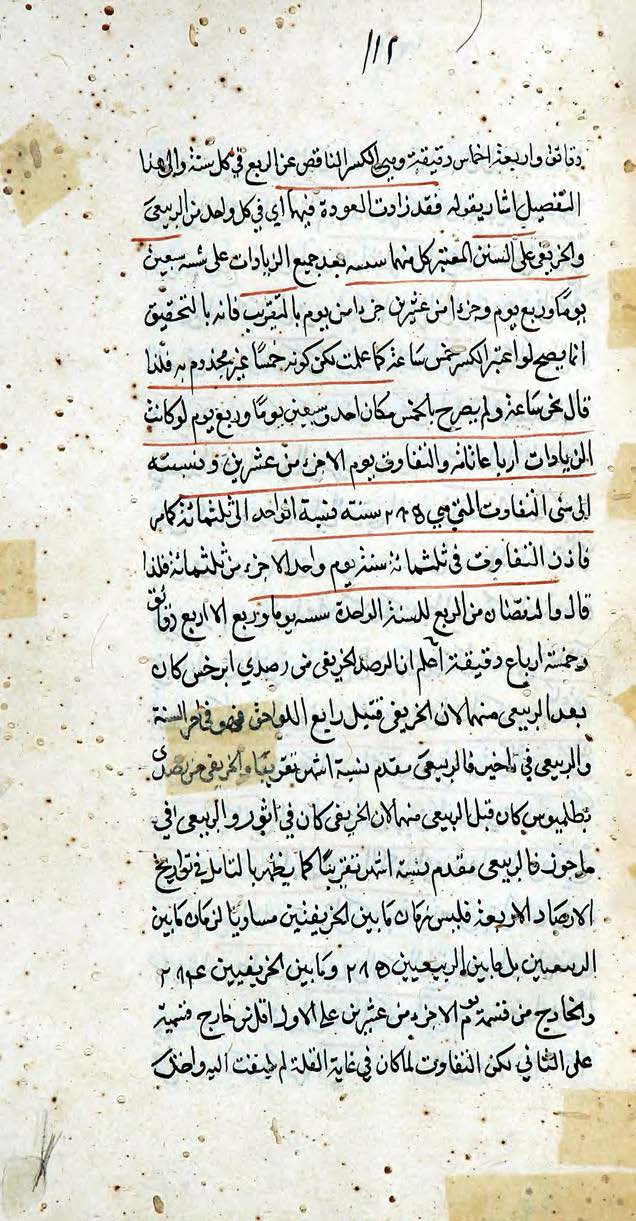 ١١٢
دقائق واربعة اخماس دقيقة وهي الكسر الناقص عن الربع في كل سنة والى هذا
التفصيل اشار بقوله فقد زادت العودة فيهما اي في كل واحد من الربيعي
والخريفي على السنين المعتبر كل منها سسه بعد جميع الزيادات على سسه سبعين
يوما وربع يوم وجزءا من عشرين جزءا من يوم بالتقريب فانه بالتحقيق
انما يصح لو اعتبر الكسر خمس ساعة كما علمت لكن كونه خمسا غير مجذوم به فلذا
قال نحو ساعة ولم يصرح بالخمس مكان احد وسبعين يوما وربع يوم لو كانت
الزيادات ارباعا تامة والتفاوت يوم الا جزء من عشرين ونسبته
الى سنى التفاوت التي هي ٢٨٥ سنة فنسبة الواحد الى ثلثمائة كامر
فاذن التفاوت في ثلثمائة سنة يوم واحد الا جزء من ثلثمائة فلذا
قال والنقصان من الربع للسنة الواحدة سسه يوما وربع الا اربع دقائق
وخمسة ارباع دقيقة اعلم ان الرصد الخريفي من رصدي ابرخس كان
بعد الربيعي منهما لان الخريفي قبيل رابع اللواحق فهو في اخر السنة
والربيعي في تاخير فالربيعي مقدم بستة اشهر تقريبا والخريفي من رصدى
بطلميوس كان قبل الربيعي منهما لان الخريفي كان في اثور والربيعي في
ماخوز فالربيعي مقدم بستة اشهر تقريبا كما يظهر بالتامل في تواريخ
الارصاد الاربعة فليس زمان ما بين الخريفيين مساويا لزمان ما بين
الربيعيين بل ما بين الربيعيين ٢٨٥ وما بين الخريفيين ٢٨٤
والخارج من قسمة يوم الا جزء من عشرين على الاول اقل من خارج قسمته
على الثاني لكن التفاوت لما كان في غاية القلة لم يلتفت اليه واخذ